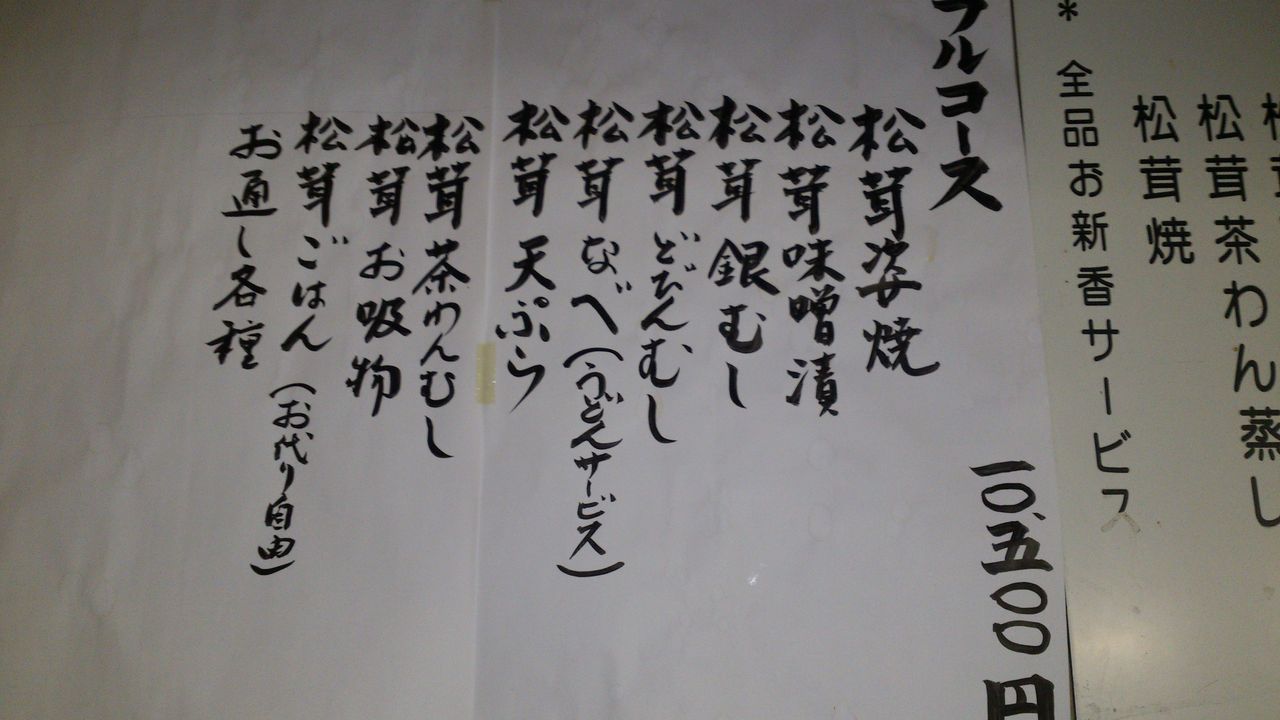 松茸茶わん蒸し
松茸焼
* 全品お新香サービス
フルコース 一〇、五〇〇円
松茸姿焼
松茸味噌漬
松茸銀むし
松茸どびんむし
松茸なべ(うどんサービス)
松茸天ぷら
松茸茶わんむし
松茸お吸物
松茸ごはん(お代り自由)
お通し各種